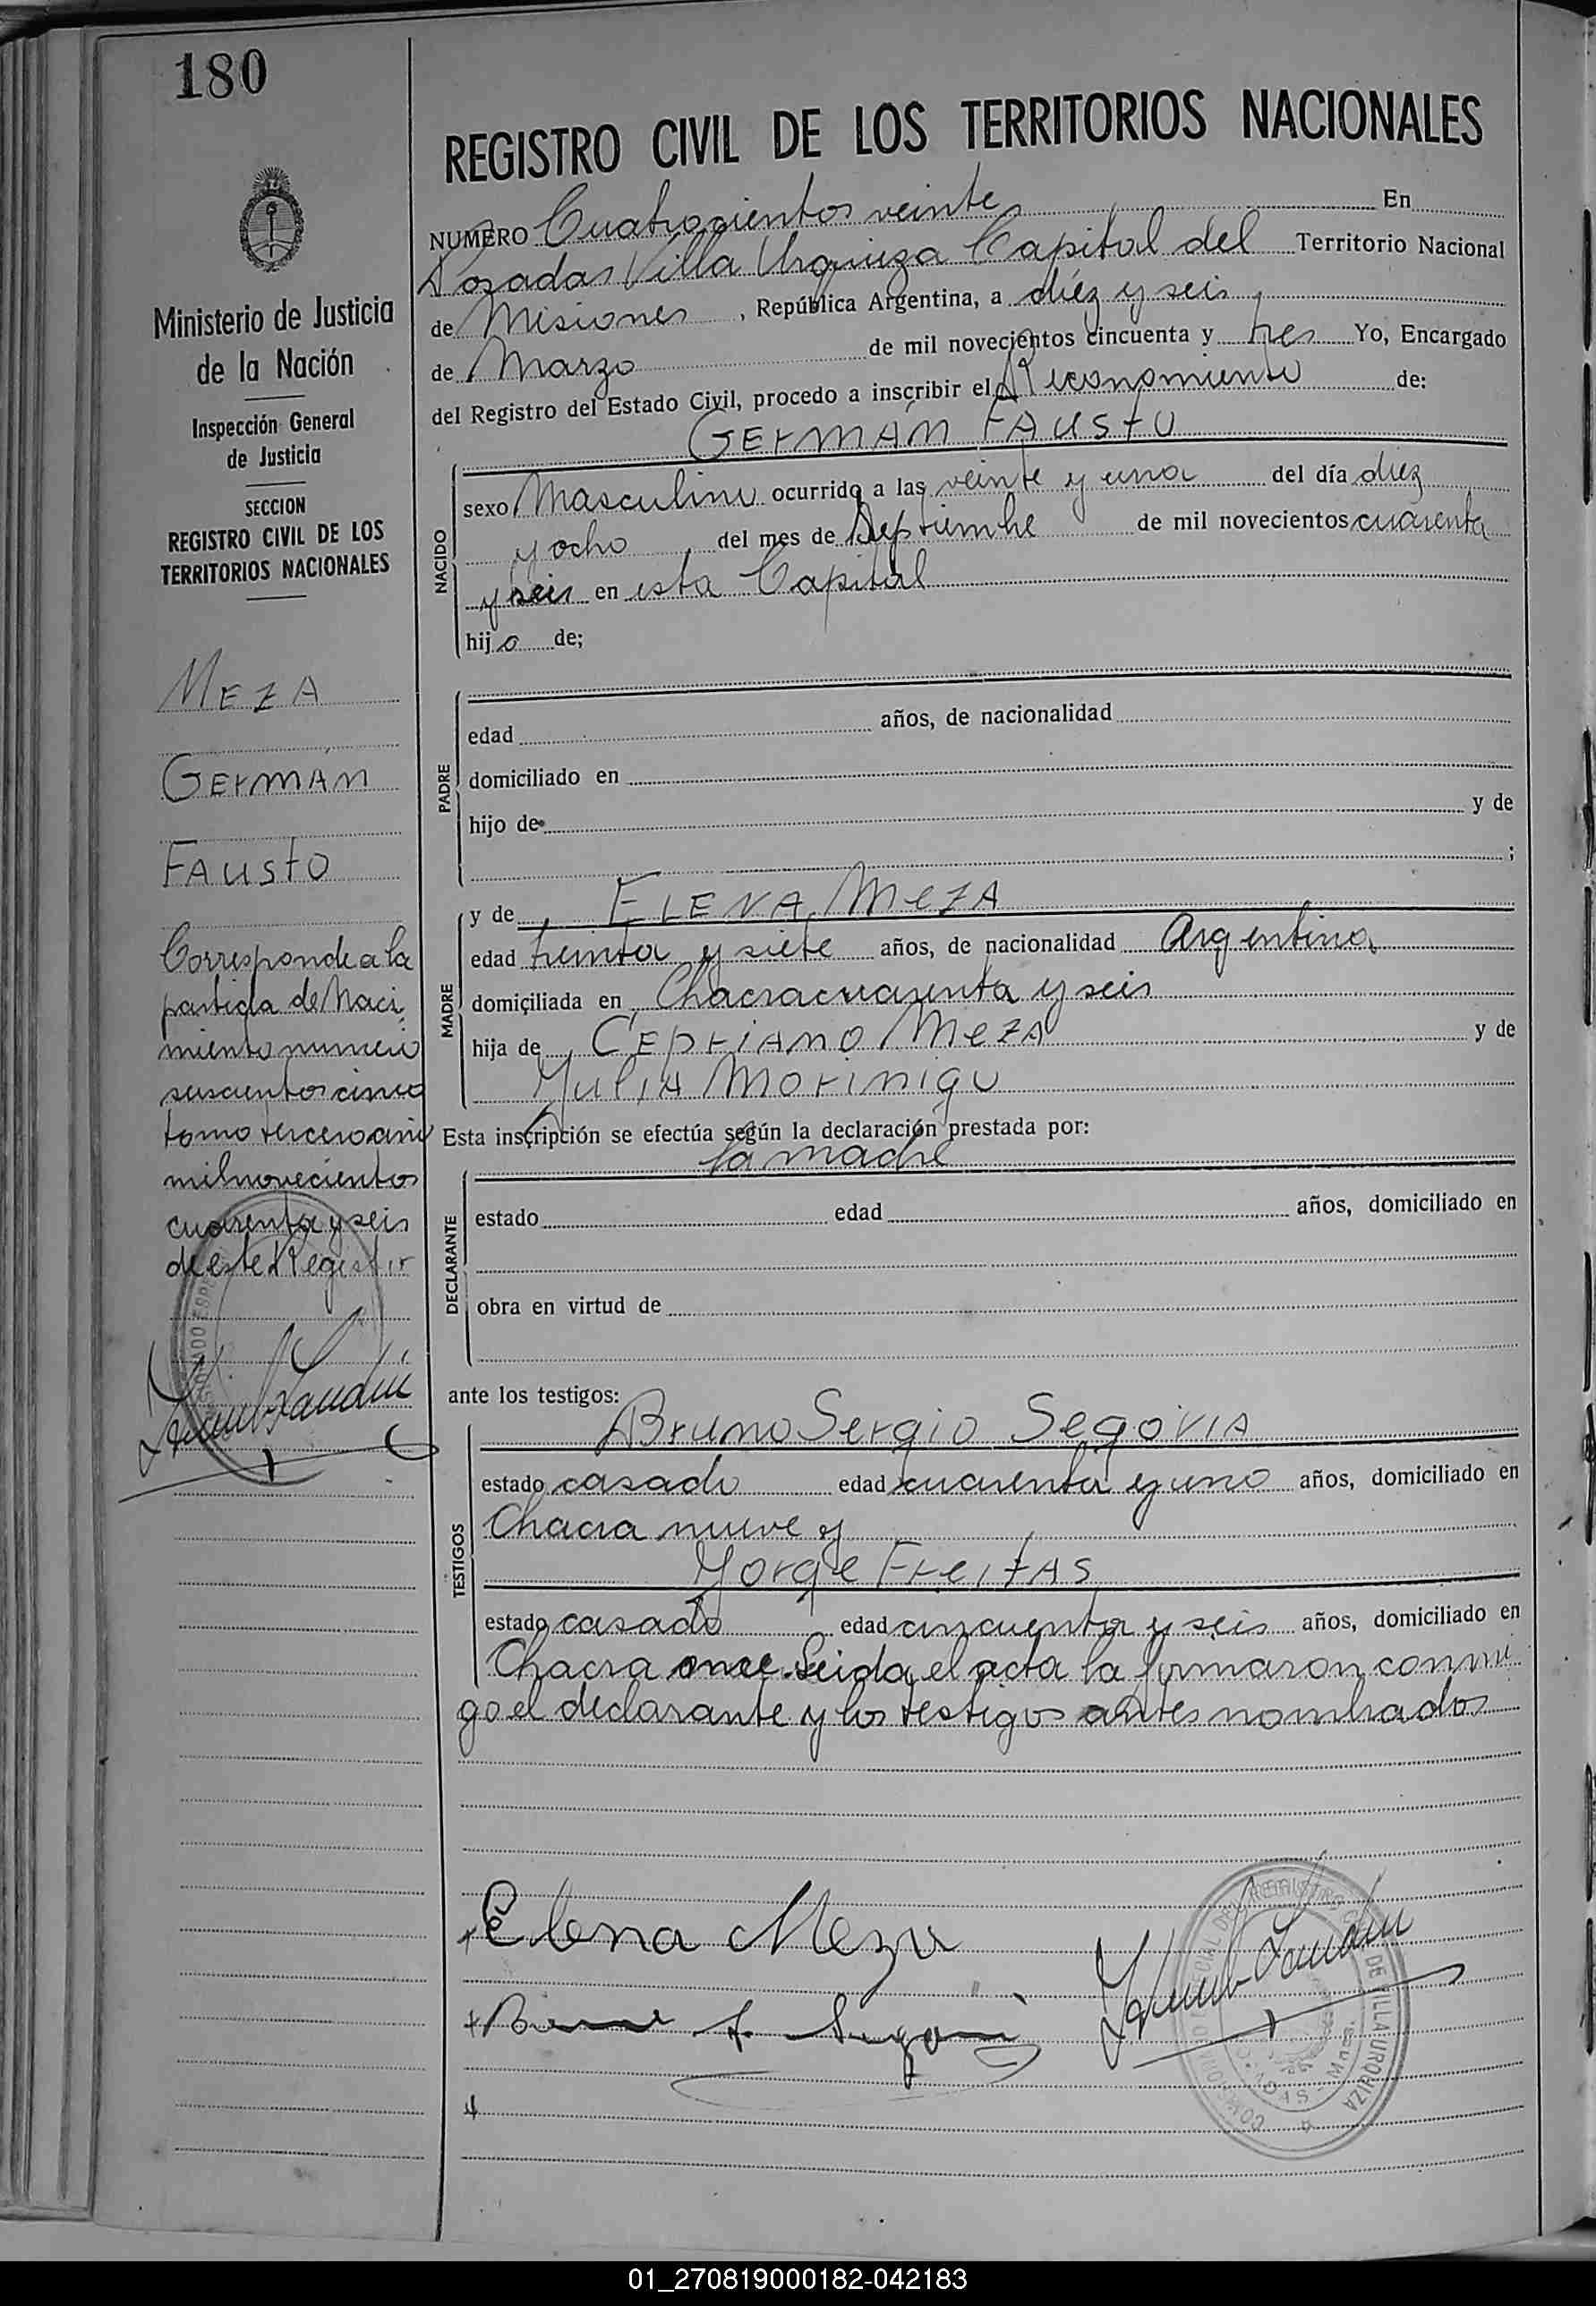 180
Ministerio de Justicia
de la Nación
Inspección General
de Justicia
SECCION
REGISTRO CIVIL DE LOS
TERRITORIOS NACIONALES
MEZA
GERMÁN
FAUSTO
Corresponde a la
partida de Naci-
miento numero
seiscientos cinco
tomo tercero año
mil novecientos
cuarenta y seis
de este Registro
REGISTRO CIVIL DE LOS TERRITORIOS NACIONALES
NUMERO Cuatrocientos veinte En
Posadas Villa Urquiza Capital del Territorio Nacional
de Misiones, República Argentina, a diéz y seis
de Marzo de mil novecientos cincuenta y tres Yo, Encargado
del Registro del Estado Civil, procedo a inscribir el Reconomiento de:
GERMÁN FAUSTO
NACIDO
sexo Masculino ocurrido a las veinte y una del día diez
y ocho del mes de Septiembre de mil novecientos cuarenta
y seis en esta Capital
hijo de;
PADRE
edad años, de nacionalidad
domiciliado en
hijo de y de
;
MADRE
y de ELENA MEZA
edad treinta y siete años, de nacionalidad Argentina
domiciliada en Chacra cuarenta y seis
hija de CEPRIANO MEZA y de
Julia MORINIGO
Esta inscripción se efectúa según la declaración prestada por:
la madre
DECLARANTE
estado edad años, domiciliado en
obra en virtud de
ante los testigos:
TESTIGOS
Bruno Sergio SEGOVIA
estado casado edad cuarenta y uno años, domiciliado en
Chacra nueve y
Jorge FREITAS
estado casado edad cincuenta y seis años, domiciliado en
Chacra once. Leida el acta la firmaron conmi
go el declarante y los testigos antes nombrados
Elena Meza
01_270819000182-042183